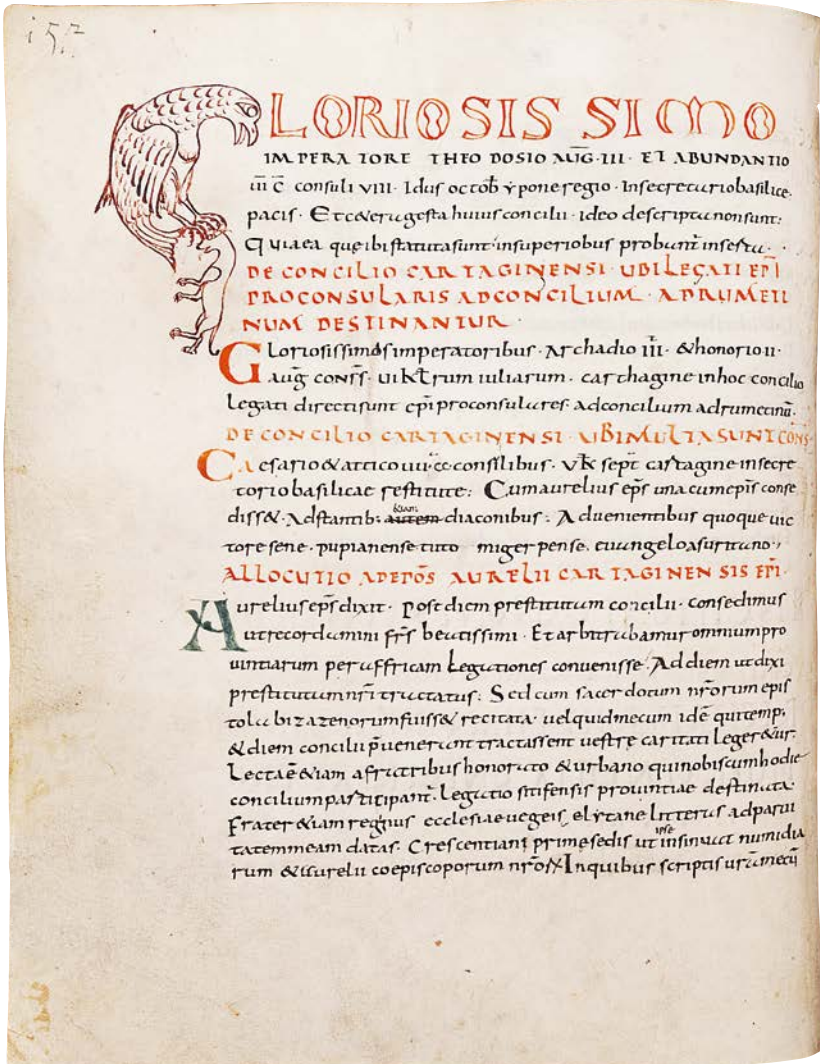 157
GLORIOSISSIMO
IMPERATORE THEODOSIO AUG·III· ET ABUNDANTIO
consuli VIII· Idus octob yponeregio· Insecretariobasilice
pacis· Etcæeragesta huius concilii· ideo descriptanonsunt:
Quiaea queibistatutasunt insuperiobus
DECONCILIO CARTAGINENSI· UBILEGATI EPI
PROCONSULARIS ADCONCILIUM· ADRUMETI
NUM DESTINANTUR·
Gloriosissimis imperatoribus· Archadio III· &honorio II·
aug conss· iuliarum· carthagine inhoc concilio
Legati directisunt epi proconsulares· adconcilium adrumetinu·
DECONCILIO CARTAGINENSI· UBIMULTASUNTCONS
Caesario&attico consulibus· sept cartagine insecre
toriobasilicae restitute: Cumaurelius eps unacumepis conse
diss&· Adstantib: autem etiam diaconibus: Aduenientibus quoque uic
toresene· pupianense tuto migerpense, euangeloasuritano·
ALLOCUTIO AURELII CARTAGINENSIS EPI·
Aurelius eps dixit· Post diem prestitutum concilii· consedimus
utrecordamini frs beatissimi· Et arbitrabamur omniumpro
uintiarum peraffricam Legationes conuenisse· Addiem utdixi
prestitutumnri tractatus: Sedcum sacerdotum nrorumepis
tola bizazenorumfuiss& recitata· uelquidmecum idē quitemp·
&diem concilii puenerunt tractassent uestre caritati leger&ur·
Lectaē&iam afratribus honorato &urbano quinobiscumhodie
conciliumparticipant· Legatio sitifensis prouintiae destinata·
Frater&iam reginus ecclesiaeuegeis elytane Litteras adparui
tatemmeam datas· Crescentiani primesedis ut ipse insinuat numidia
rum &aurelii coepiscoporum nrorum Inquibus scriptis